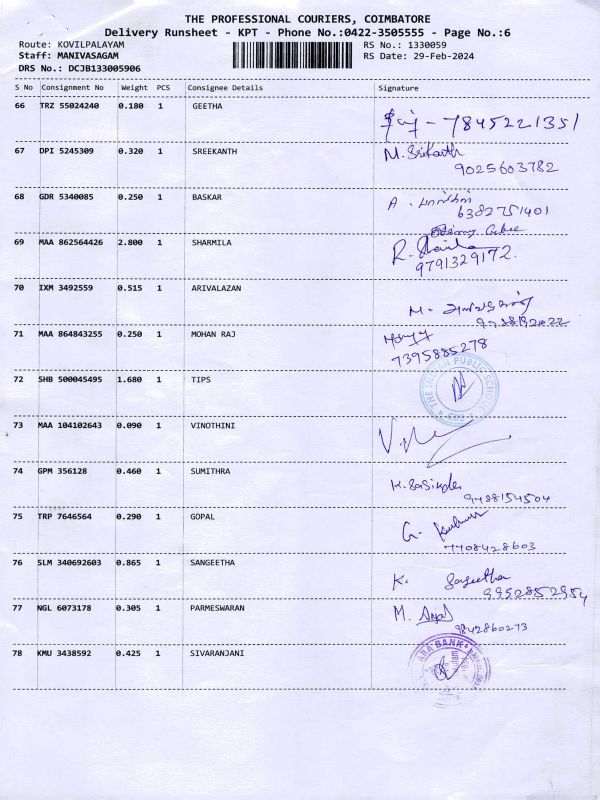 THE PROFESSIONAL COURIERS, COIMBATORE
Delivery Runsheet - KPT - Phone No.:0422-3505555 - Page No.:6
Route: KOVILPALAYAM RS No.: 1330059
Staff: MANIVASAGAM RS Date: 29-Feb-2024
DRS No.: DCJB133005906
S No Consignment No Weight PCS Consignee Details Signature
66 TRZ 55024240 0.180 1 GEETHA
- 7845221351
67 DPI 5245309 0.320 1 SREEKANTH M. Srikanth
9025603782
68 GDR 5340085 0.250 1 BASKAR A.
6382751401
69 MAA 862564426 2.800 1 SHARMILA R.
9791329172.
70 IXM 3492559 0.515 1 ARIVALAZAN
M.
71 MAA 864843255 0.250 1 MOHAN RAJ
7395885278
72 SHB 500045495 1.680 1 TIPS THE INDIAN PUBLIC SCHOOL
73 MAA 104102643 0.090 1 VINOTHINI
74 GPM 356128 0.460 1 SUMITHRA K.
9488154504
75 TRP 7646564 0.290 1 GOPAL G.
7708428603
76 SLM 340692603 0.865 1 SANGEETHA K. Sageetha
9952852954
77 NGL 6073178 0.305 1 PARMESWARAN M.
9842860273
78 KMU 3438592 0.425 1 SIVARANJANI BANK